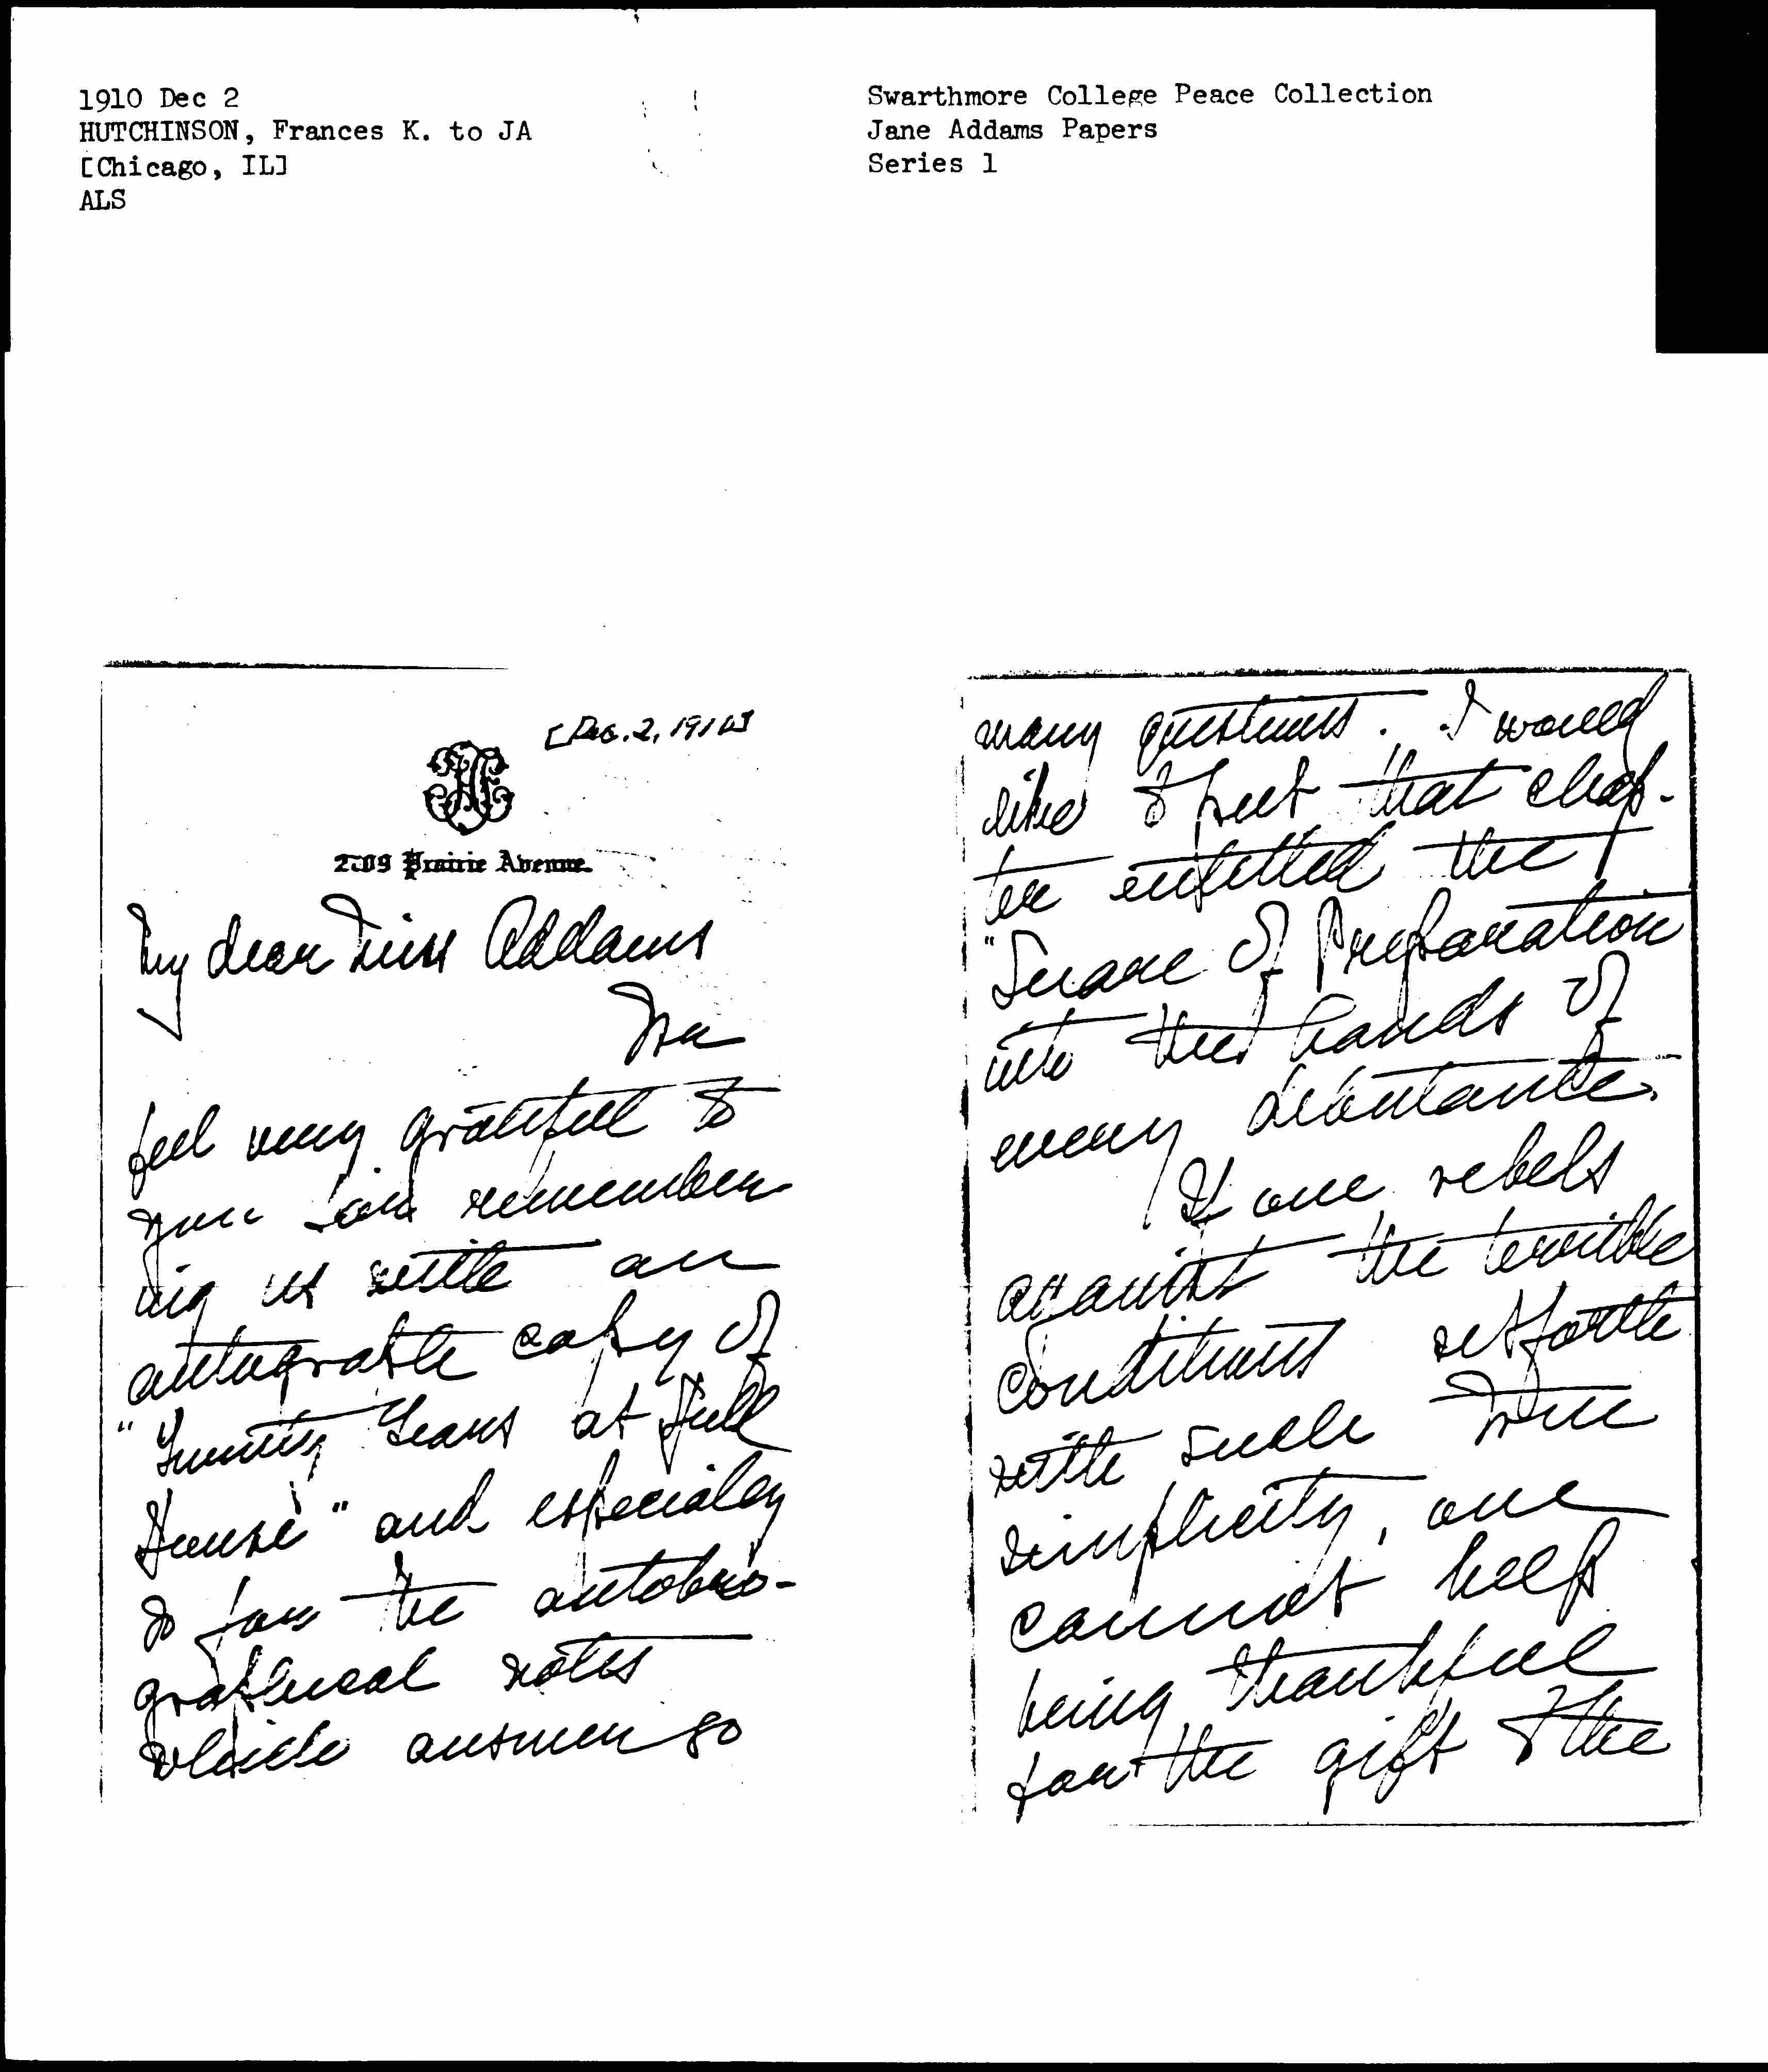 1910 Dec 2
HUTCHINSON, Frances K. to JA
[Chicago, IL]
ALS
Swarthmore College Peace Collection
Jane Addams Papers
Series 1
[Dec. 2, 1910]
2709 Prairie Avenue.
My dear Miss Addams
We
feel very grateful to
you for remember
ing us with an
autograph copy of
"Twenty Years at Hull
House" and especialey
so for the autobio-
graphical notes
which answer so
many questions. I would
like to put that chap-
ter entitled the
"Snare of Preparation
into the hands of
every debutante.
If one rebels
against the terrible
conditions set forth
with such true
simplicity, one
cannot help
being thankful
for the gift to the